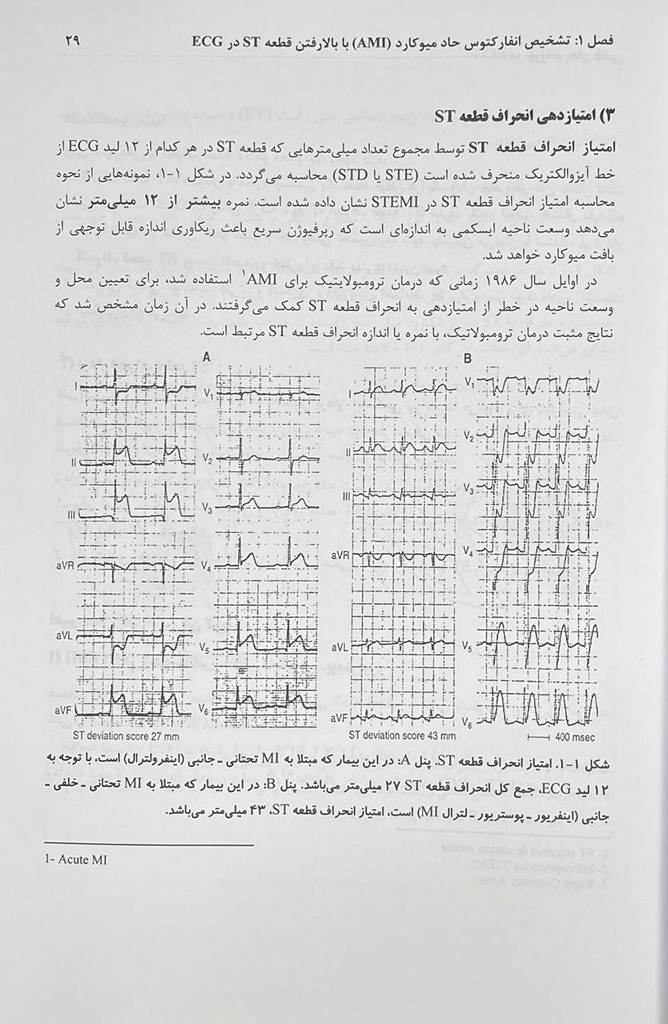 فصل ۱: تشخیص انفارکتوس حاد میوکارد (AMI) با بالارفتن قطعه ST در ECG
۲۹
۳) امتیازدهی انحراف قطعه ST
امتیاز انحراف قطعه ST توسط مجموع تعداد میلی‌مترهایی که قطعه ST در هر کدام از ۱۲ لید ECG از
خط ایزوالکتریک منحرف شده است (STE یا STD) محاسبه می‌گردد. در شکل ۱-۱، نمونه‌هایی از نحوه
محاسبه امتیاز انحراف قطعه ST در STEMI نشان داده شده است. نمره بیشتر از ۱۲ میلی‌متر نشان
می‌دهد وسعت ناحیه ایسکمی به اندازه‌ای است که رپرفیوژن سریع باعث ریکاوری اندازه قابل توجهی از
بافت میوکارد خواهد شد.
در اوایل سال ۱۹۸۶ زمانی که درمان ترومبولایتیک برای AMI¹ استفاده شد، برای تعیین محل و
وسعت ناحیه در خطر از امتیازدهی به انحراف قطعه ST کمک می‌گرفتند. در آن زمان مشخص شد که
نتایج مثبت درمان ترومبولاتیک، با نمره یا اندازه انحراف قطعه ST مرتبط است.
A
I
II
III
aVR
aVL
aVF
V1
V2
V3
V4
V5
V6
ST deviation score 27 mm
B
I
II
III
aVR
aVL
aVF
V1
V2
V3
V4
V5
V6
ST deviation score 43 mm
400 msec
شکل ۱-۱. امتیاز انحراف قطعه ST. پنل A: در این بیمار که مبتلا به MI تحتانی - جانبی (اینفرولترال) است، با توجه به
۱۲ لید ECG، جمع کل انحراف قطعه ST ۲۷ میلی‌متر می‌باشد. پنل B: در این بیمار که مبتلا به MI تحتانی - خلفی -
جانبی (اینفریور - پوستریور - لترال MI) است، امتیاز انحراف قطعه ST، ۴۳ میلی‌متر می‌باشد.
1- Acute MI